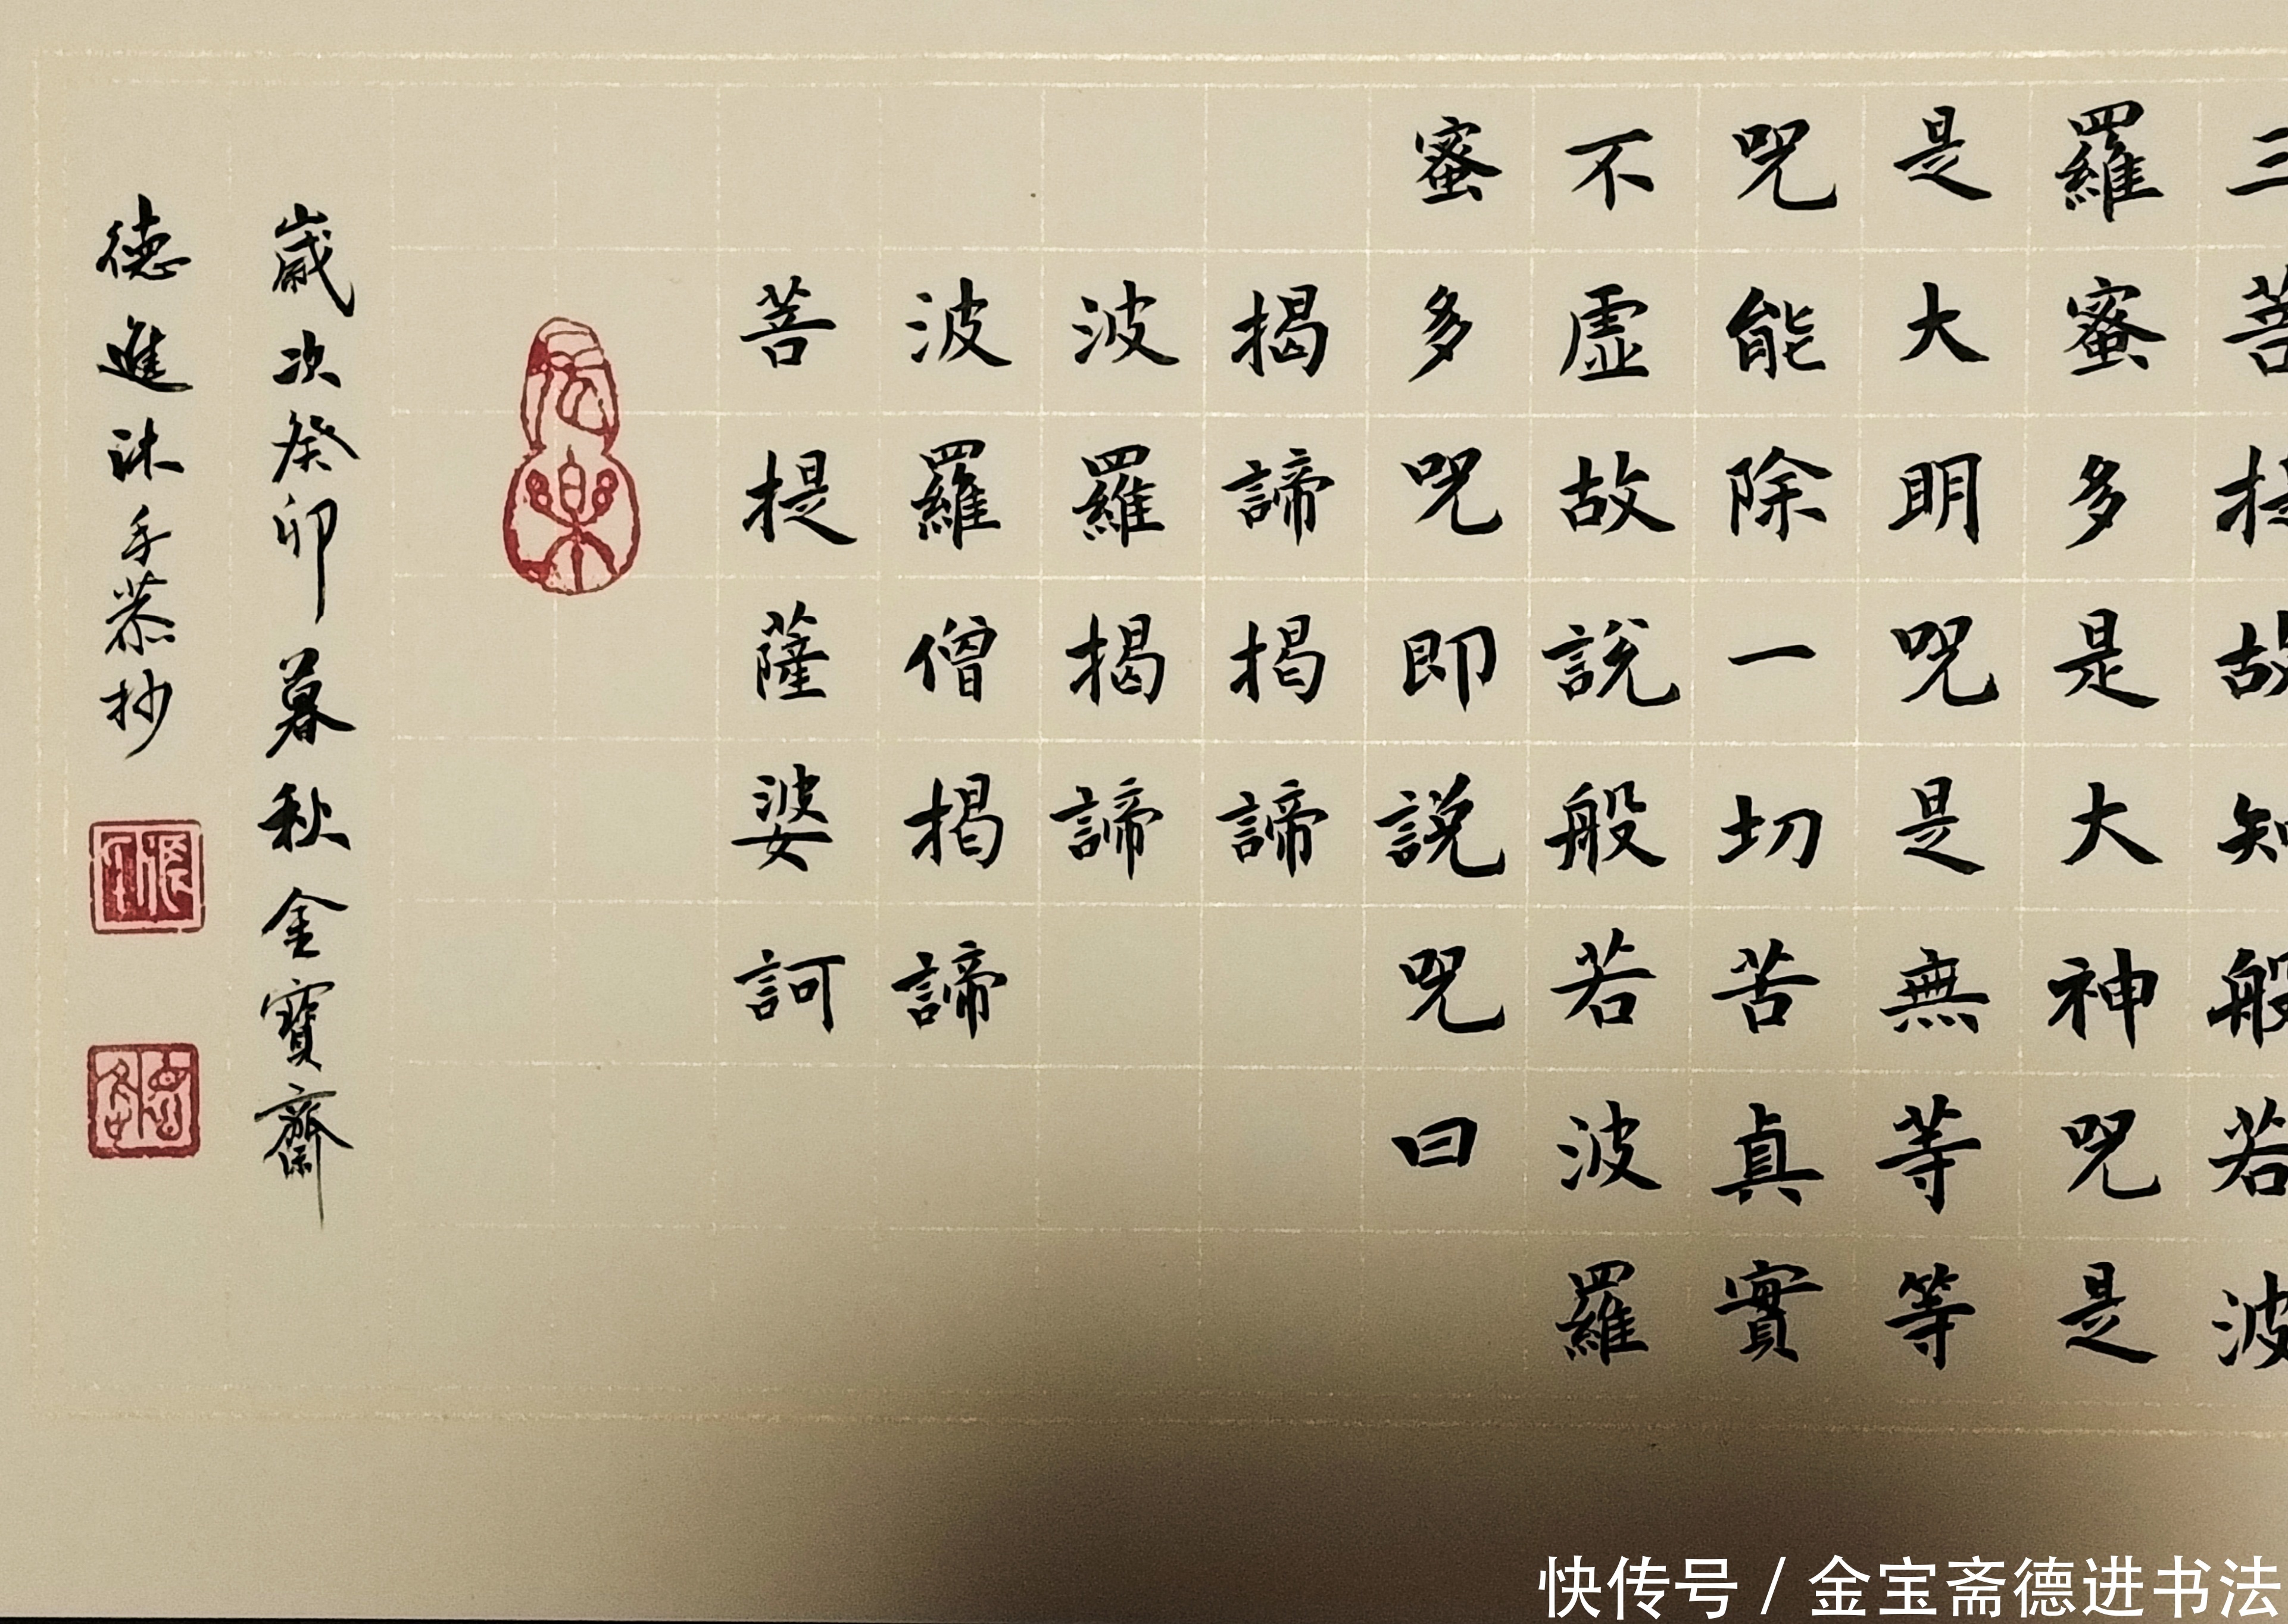 三菩提故知般若波
羅蜜多是大神咒是
是大明咒是無等等
咒能除一切苦真實
不虛故說般若波羅
蜜多咒即說咒曰
揭諦揭諦
波羅揭諦
波羅僧揭諦
菩提薩婆訶
歲次癸卯暮秋金寶齋
德進沐手恭抄
快传号 / 金宝斋德进书法